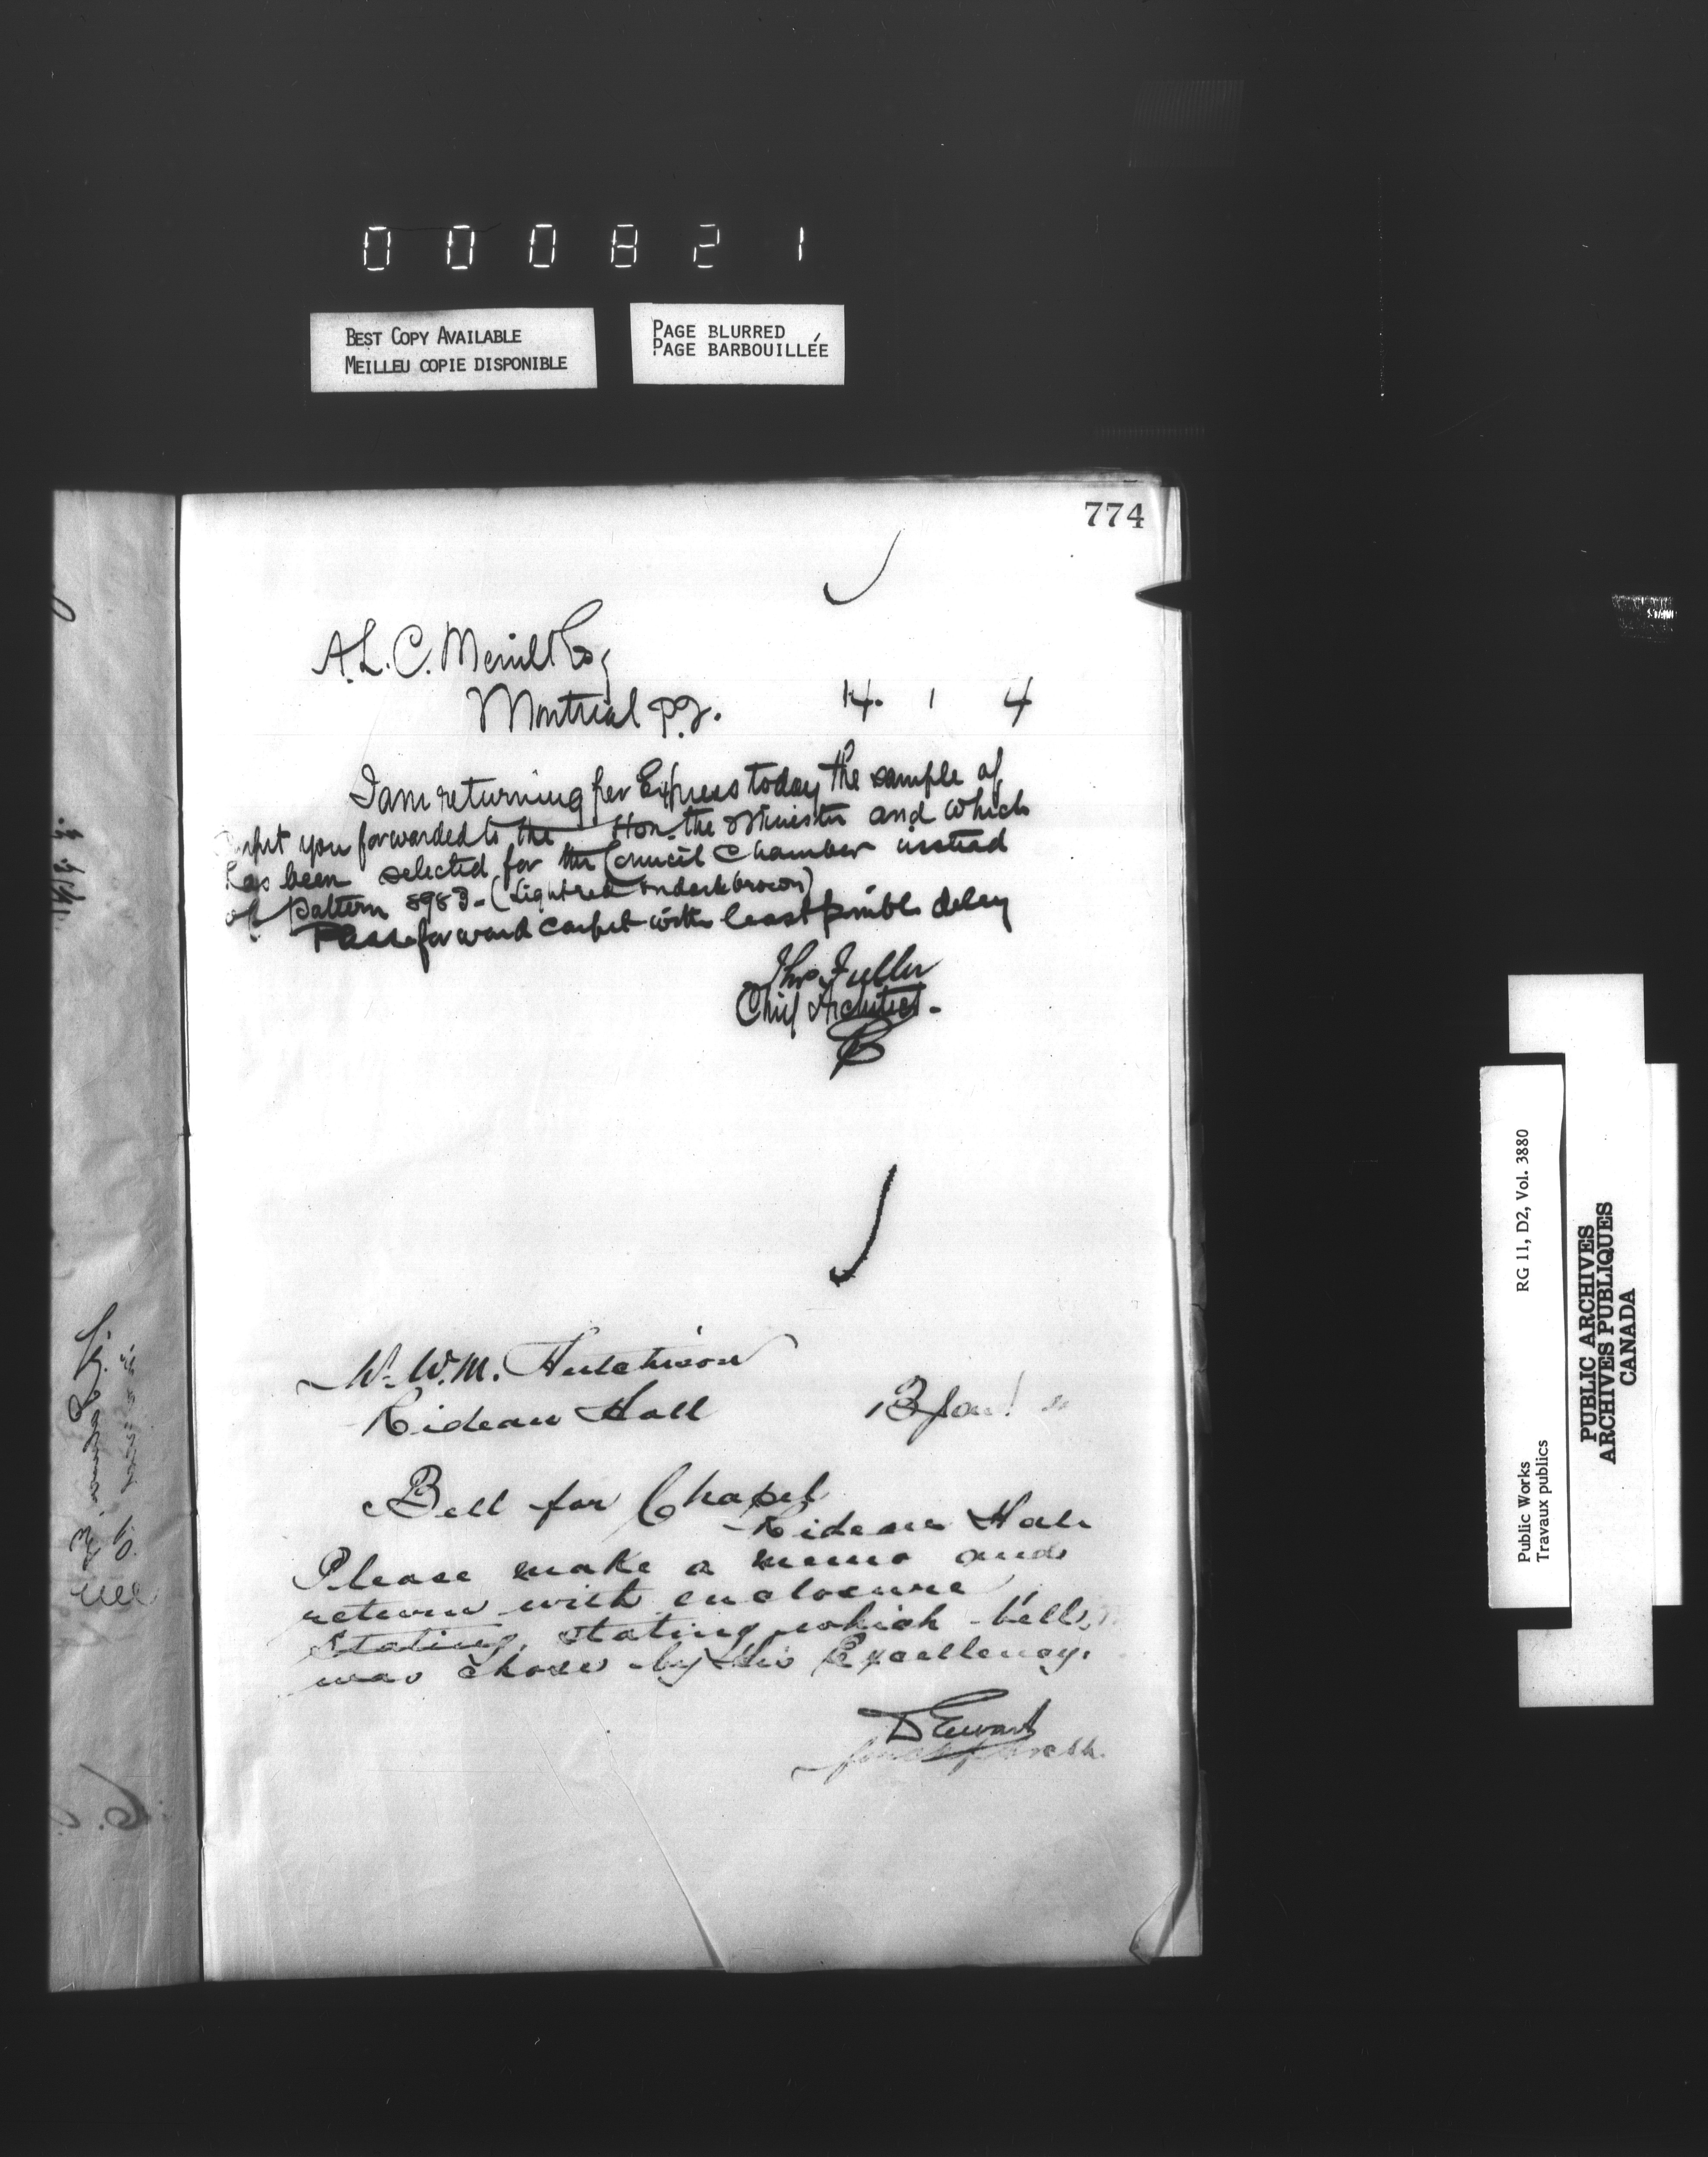 000821
BEST COPY AVAILABLE
MEILLEU COPIE DISPONIBLE
PAGE BLURRED
PAGE BARBOUILLÉE
774
A.L.C. Merrill Esq
Montreal P.Q. 14. 1 4
I am returning per Express today the sample of
carpet you forwarded to the Hon. the Minister and which
has been selected for the Council Chamber instead
of Pattern 8983 - (Light red on dark brown)
Please forward carpet with least possible delay
Thos Fuller
Chief Architect.
W. W.M. Hutchison
Rideau Hall 13 Jan
Bell for Chapel
Rideau Hall
Please make a memo and
return with enclosure
stating, stating which bell
was chosen by His Excellency.
D Ewart
RG 11, D2, Vol. 3880
Public Works
Travaux publics
PUBLIC ARCHIVES
ARCHIVES PUBLIQUES
CANADA